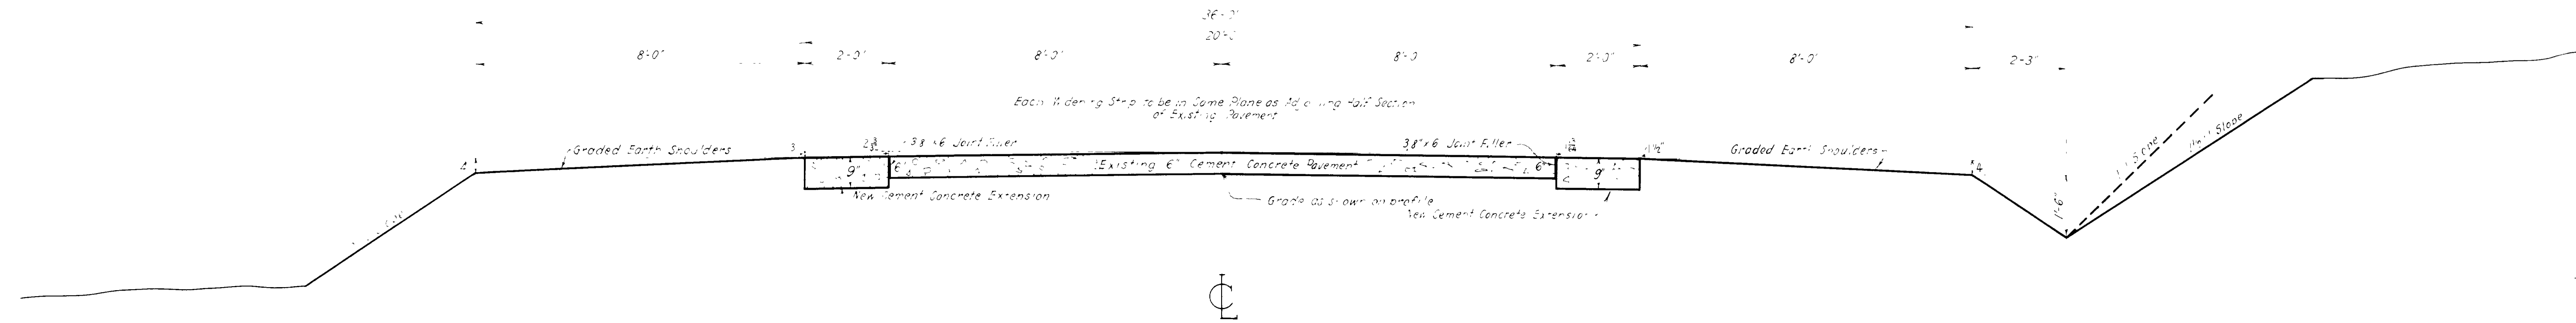 36'-0"
20'-0
8'-0" 2'-0" 8'-0" 8'-0 2'-0" 8'-0" 2'-3"
Each Widening Strip to be in Same Plane as Adjoining Half Section
of Existing Pavement
Graded Earth Shoulders
3
3/8 x 6 Joint Filler
3/8" x 6 Joint Filler
1½"
Graded Earth Shoulders
4
4
9"
6"
Existing 6" Cement Concrete Pavement
6"
9"
New Cement Concrete Extension
Grade as shown on profile
New Cement Concrete Extension
1'-6"
Slope
1½:1 Slope
CL